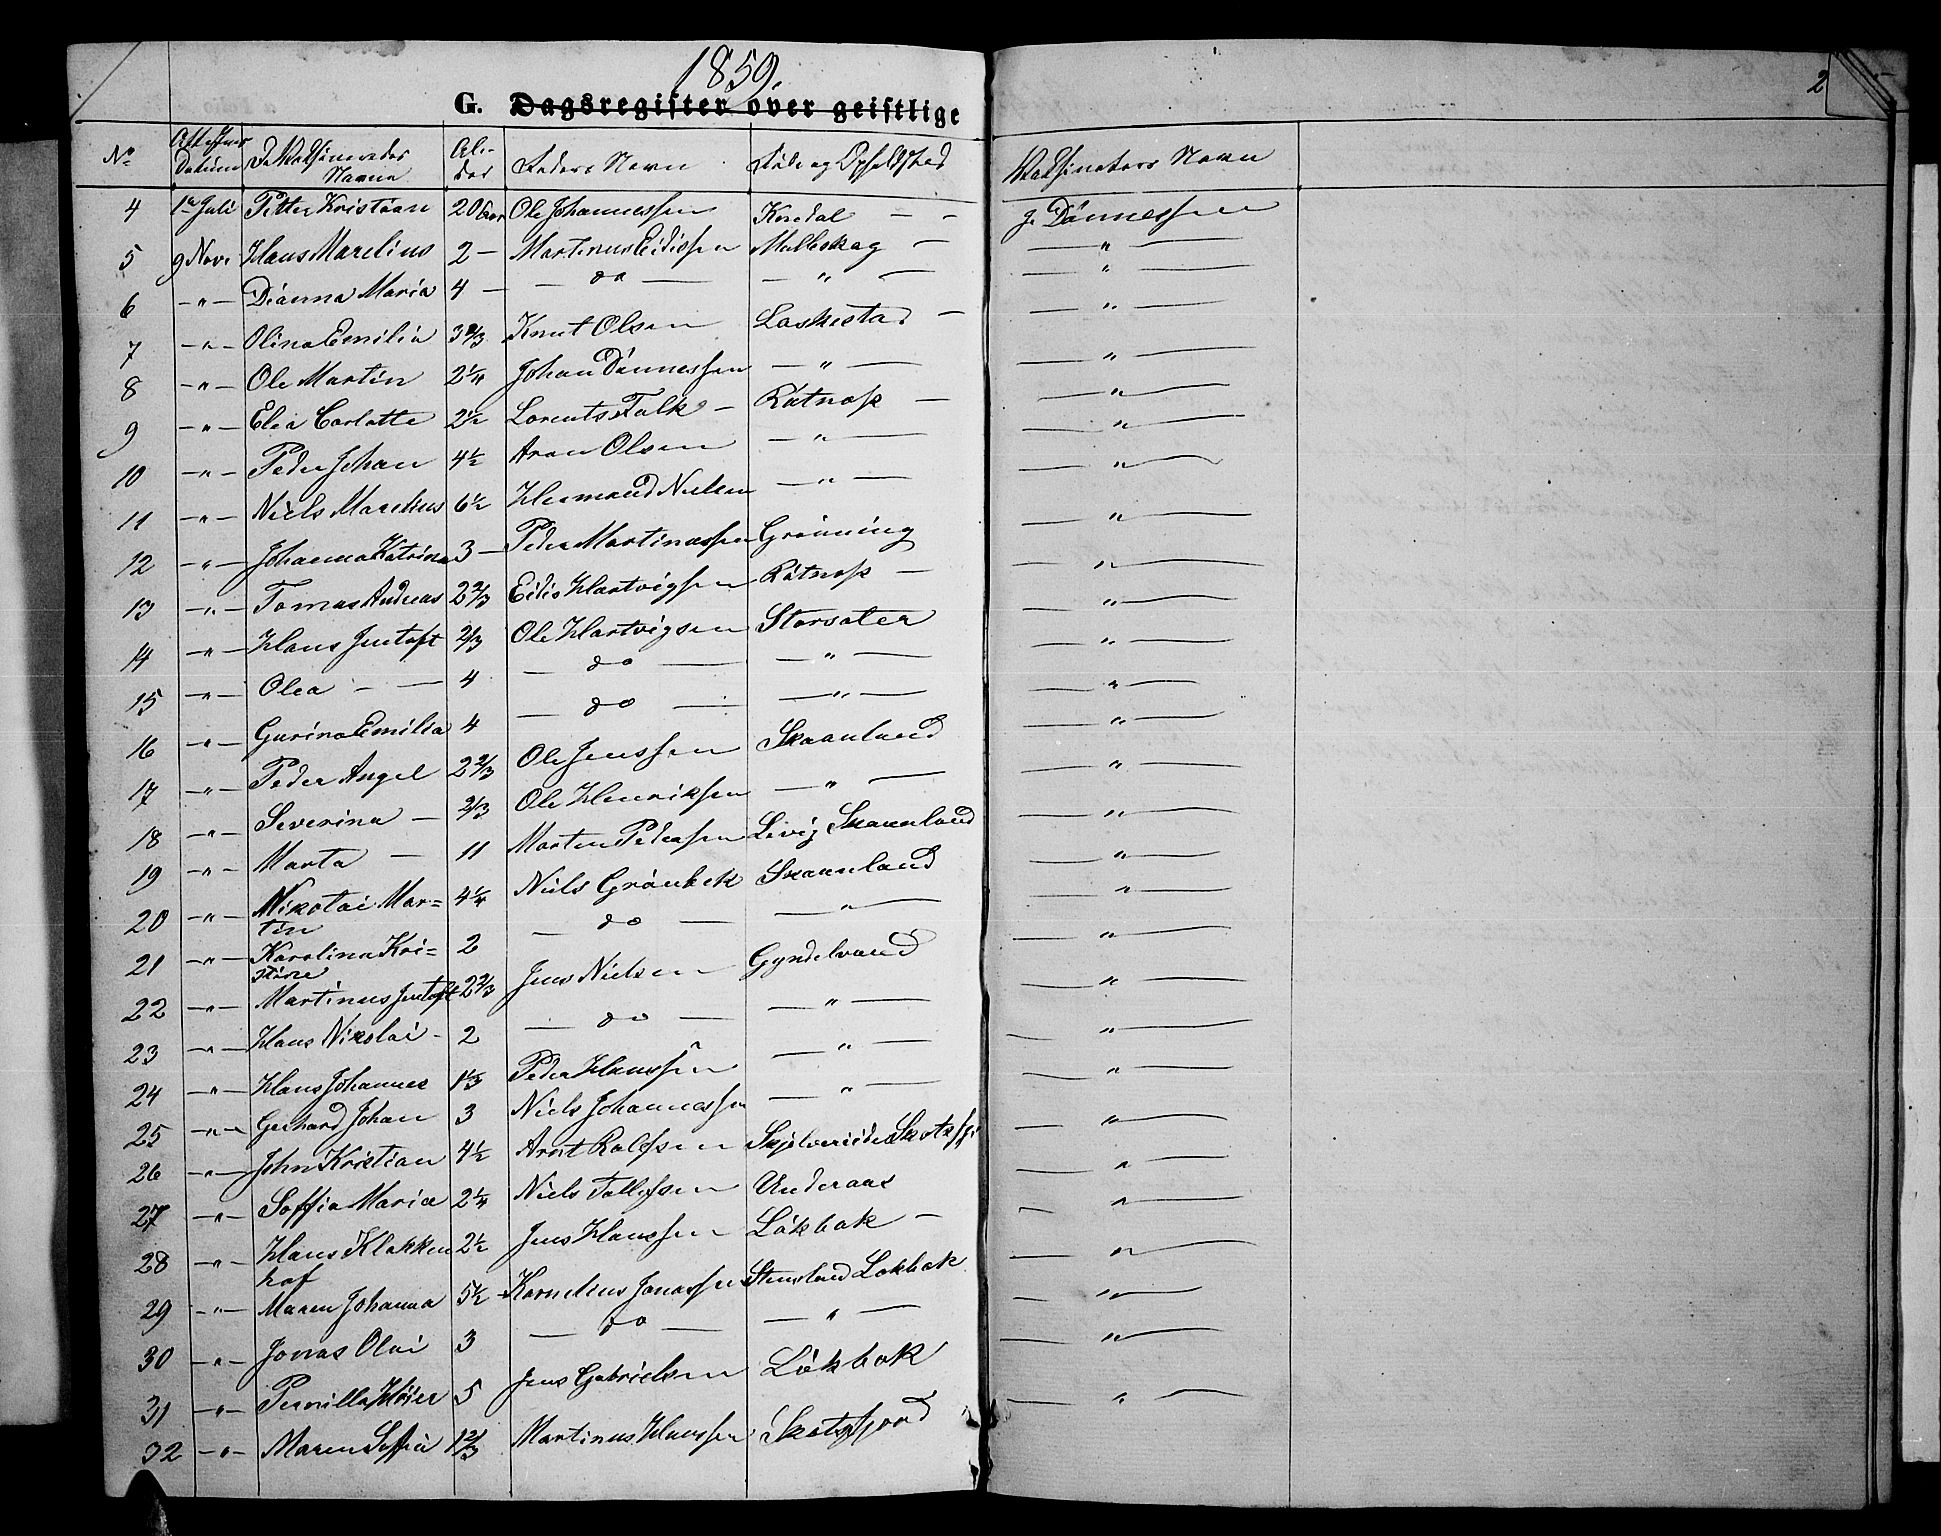 1859.
2
G. Dagsregister over geistlige
No Attestens Datum De Vaksineredes Navne Al-der Faders Navn Føde og Opholdsted Vaksinators Navn
4 1te Juli Petter Kristian 20 Aar Ole Johannessen - - J. Dønnessen
5 9 Nove Hans Marelius 2 - Martinus Eidissen - — " —
6 - " - Dianna Maria 4 - — do — — " — — " —
7 - " - Olina Emilia 3 2/3 Knut Olsen Laskestad - — " —
8 - " - Ole Martin 2 1/4 Johan Dønnessen — " — — " —
9 - " - Elea Carlotte 2 1/2 Lorents Falk - - — " —
10 - " - Peder Johan 4 1/2 Aron Olsen — " — — " —
11 - " - Niels Marelius 6 1/2 Hermand Nielsen — " — — " —
12 - " - Johanna Katrina 3 - Peder Martinussen Grønning — " —
13 - " - Tomas Andreas 2 2/3 Eidis Hartvigsen - — " —
14 - " - Hans Justoft 2/3 Ole Hartvigsen Storsæter — " —
15 - " - Olea - - 4 — do — — " — — " —
16 - " - Gurina Emilia 4 — do — — " — — " —
17 - " - Peder Angel 2 2/3 Ole Jenssen Skaanland — " —
18 - " - Severina - 2/3 Ole Henriksen — " — — " —
19 - " - Marta - 11 Morten Pedersen Skaanland — " —
20 - " - Nikolai Mar= 4 1/4 Niels Grønbek Skaanland — " —
tin
21 - " - Karolina Kri= 2 — do — — " — — " —
stine
22 - " - Martinus Justoft 2 2/3 Jens Nielsen — " —
23 - " - Hans Nikolai - 2 — do — — " — — " —
24 - " - Hans Johannes 1 1/3 Peder Hanssen — " — — " —
25 - " - Gerhard Johan 3 Niels Johannessen — " — — " —
26 - " - John Kristian 4 1/2 Arnt Rolfsen — " —
27 - " - Soffia Maria 2 1/4 Niels Tollefsen Underaas — " —
28 - " - Hans Klakken 2 1/2 Jens Hanssen Løkbak - — " —
hof
29 - " - Maren Johanna 5 1/2 Kornelius Jonassen Stensland Løkbak — " —
30 - " - Jonas Olai 3 — do — — " — — " —
31 - " - Pernilla Høier 5 Jens Gabrielsen Løkbak — " —
32 - " - Maren Soffia 1 2/3 Martinus Hanssen Skotsfjord — " —